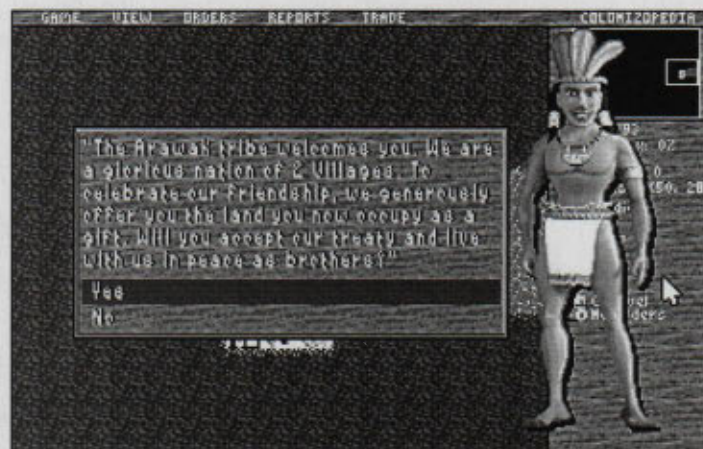 GAME VIEW ORDERS REPORTS TRADE COLONIZOPEDIA
"The Arawak tribe welcomes you. We are
a glorious nation of 2 Villages. To
celebrate our friendship, we generously
offer you the land you now occupy as a
gift. Will you accept our treaty and live
with us in peace as brothers?"
Yes
No